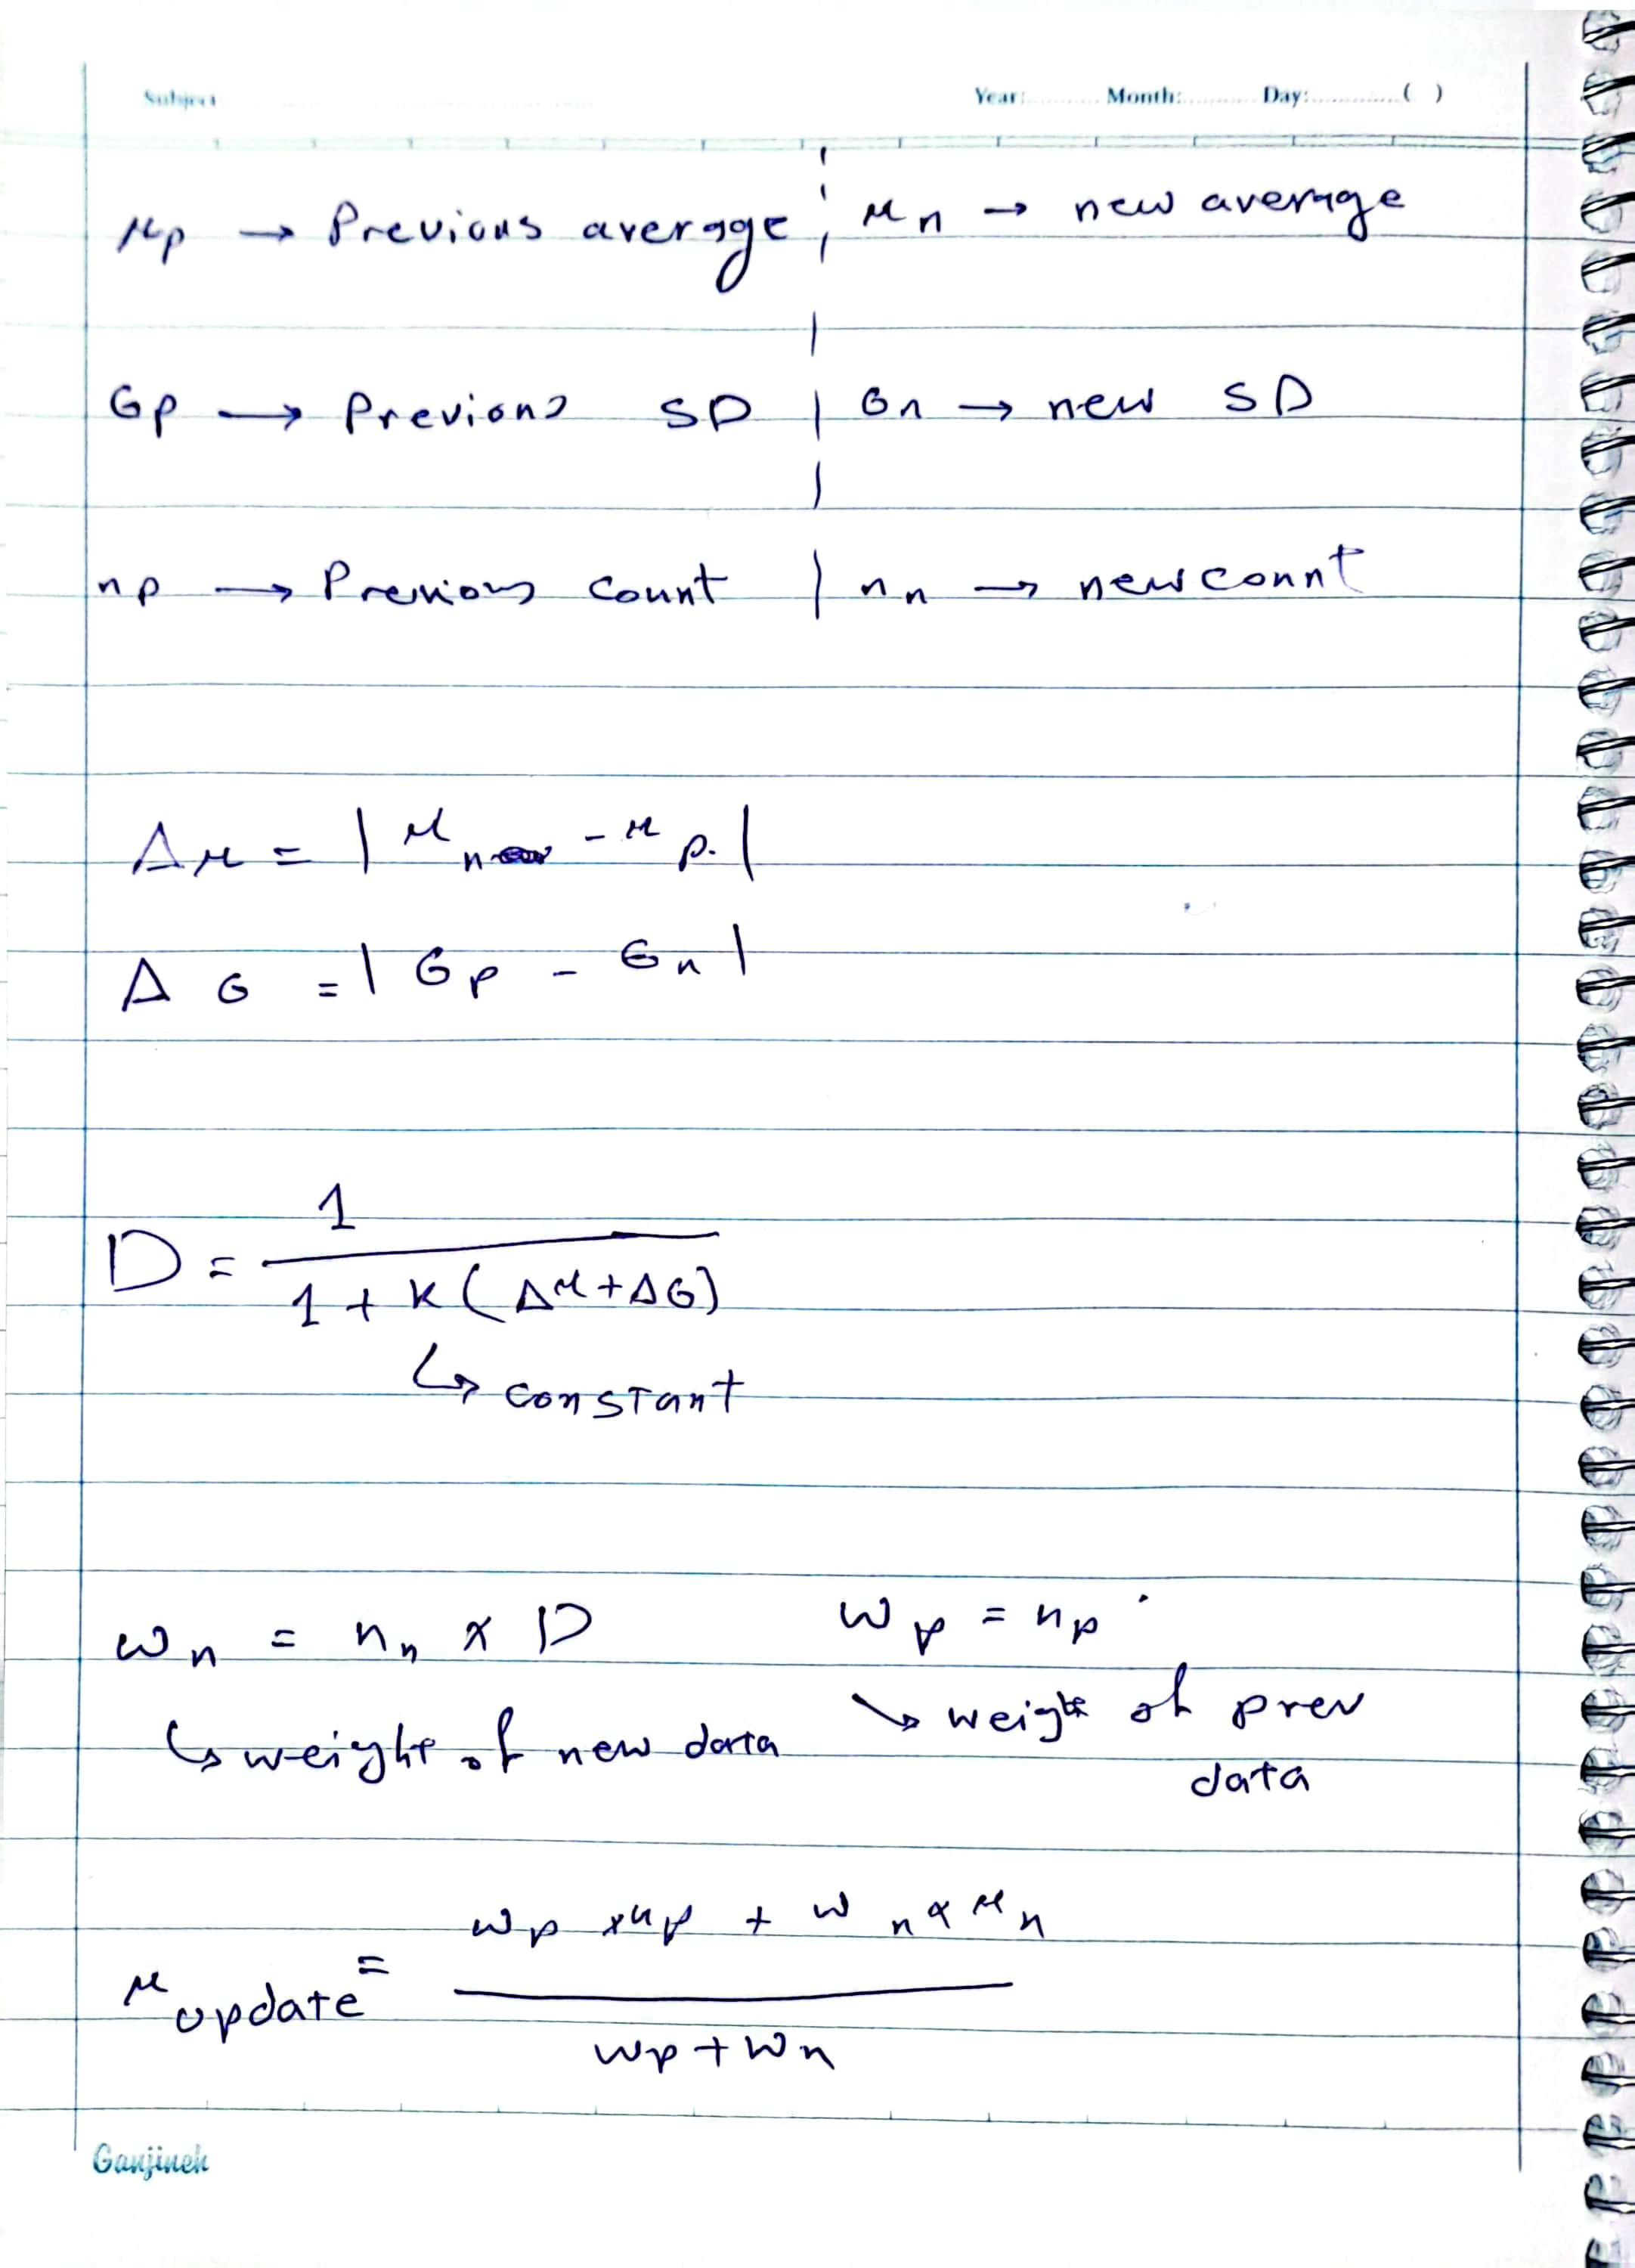 Subject Year: Month: Day: ( )
μp → Previous average | μn → new average
σp → Previous SD | σn → new SD
np → Previous count | nn → new count
Δμ = | μn - μp |
Δσ = | σp - σn |
D = 1 / 1 + K (Δμ + Δσ)
↳ constant
wn = nn × D wp = np
↳ weight of new data ↘ weight of prev
data
μupdate = wp × μp + wn × μn / wp + wn
Ganjineh